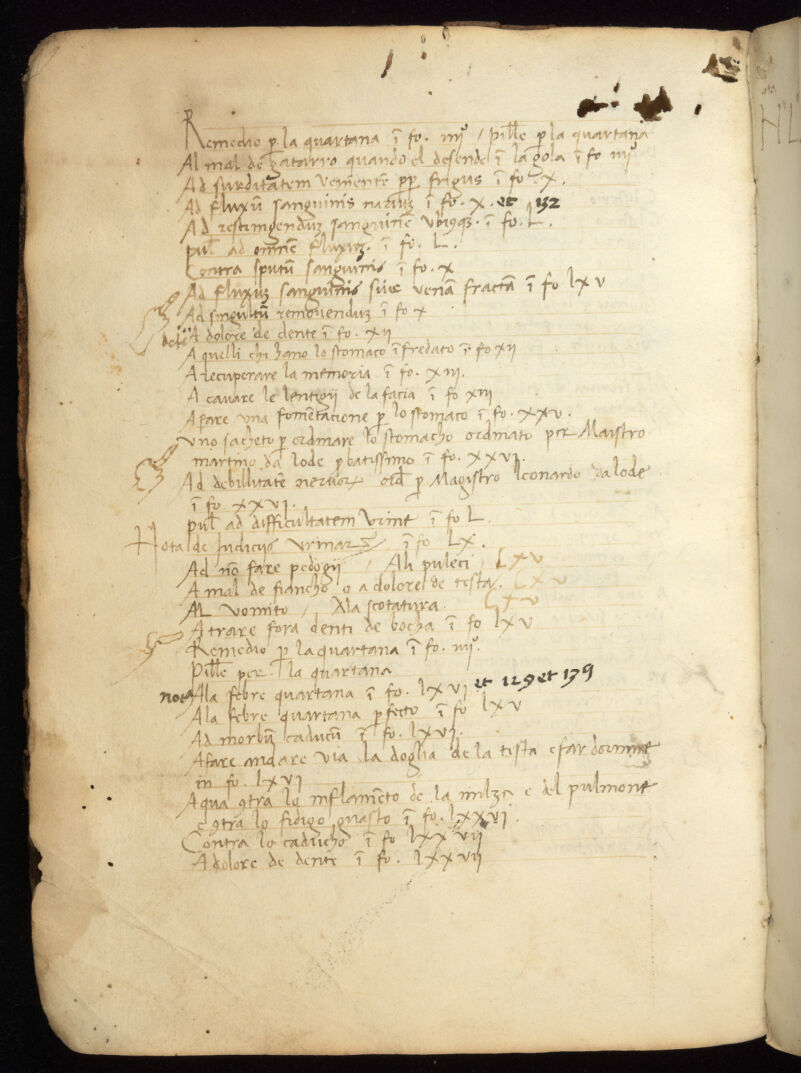 Remedio p̱ la quartana ī fo. iiijº / Pill̄e p̱ la quartana
Al mal de gatarro quando el desende ī la gola ī fo iiijº
Ad surditatem venientē pp̄ frigus ī fo. X.
Ad fluxū sanguinis nariuʒ ī fo. X. et 132
Ad restringenduʒ sanguinē ubiqʒ. ī fo. L.
pul̄ ad omnē fluxuʒ. ī fo. L.
Contra sputū sanguinis ī fo. x
Ad fluxuʒ sanguinis sive venā fractā ī fo lxv
Ad singultū removenduʒ ī fo x
A dolore de dente ī fo. xii
A quelli chi hano lo stomaco īfredato ī fo xii
A recuperare la memoria ī fo. xiii.
A cavare le lentigii de la facia ī fo xiii
A fare una fometacione p̱ lo stomaco ī fo. xxv.
Uno sacheto p̱ ordinare lo stomacho ordinato per Maistro
martino da lode p̱batissimo ī fo. xxvi.
Ad debillitatē nervorꝝ ord̄ p̱ Magistro leonardo da lode
ī fo xxvi.
pul̄ ad difficultatem urine ī fo L
Nota de Iudiciis urinarꝝ ī fo Lx.
Ad nō fare pedogii / Ali puleci / Lxv
A mal de fiancho o a dolore de testa. Lxv
Al vomito / Ala scotatura Lxv
A trare fora denti de bocha ī fo lxv
Remedio p̱ la quartana ī fo. iiijº.
Pill̄e per la quartana
nota Ala febre quartana ī fo. lxvi et 129 et 139
Ala febre quartana p̱fecto ī fo lxv
Ad morbū caducū ī fo. lxvi.
A fare andare via la doglia de la testa e far dormire
in fo. lxvi
Aqua ꝯtra lo inflamēto de la milza e del pulmone
e ꝯtra lo fidigo guasto ī fo. lxxvi.
Contra lo caducho ī fo lxxvii
A dolore de dente ī fo. lxxvii